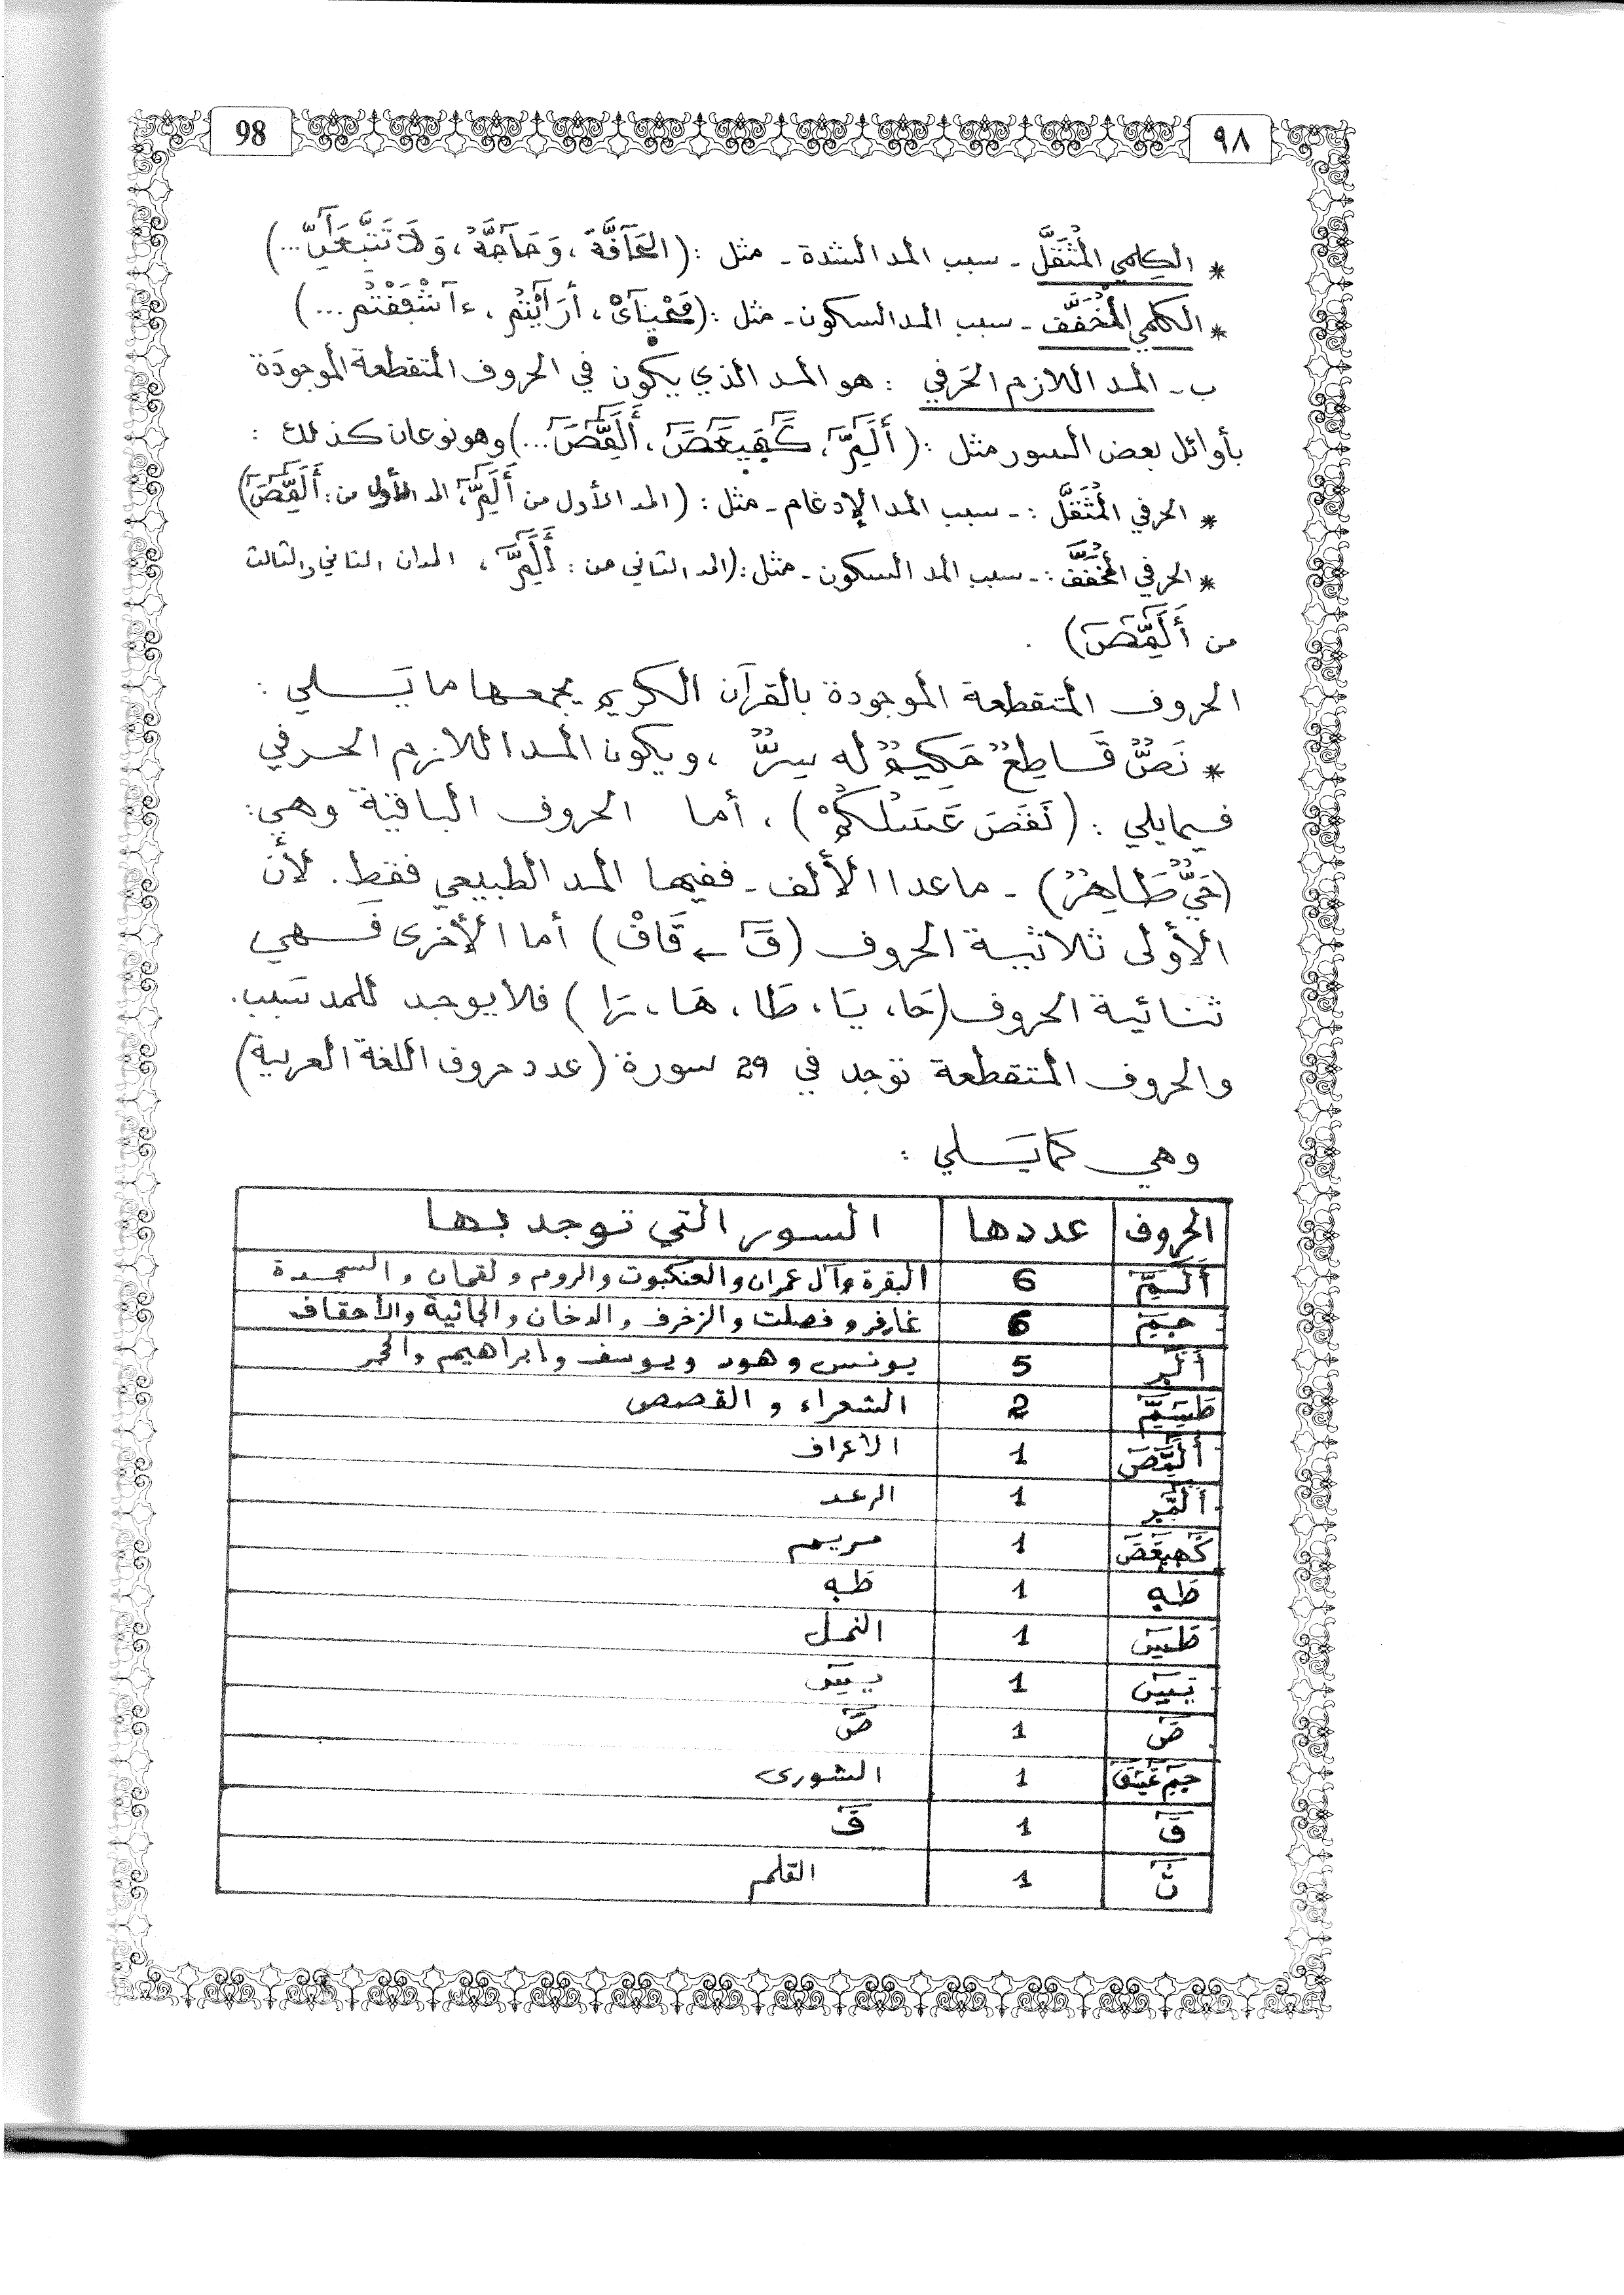 98
٩٨
* الكلمي المُثَقَّل - سبب المد الشدة - مثل : (الحَآقَّةُ ، وَحَآجَّهُ ، وَلَا تَتَّبِعَآنِّ ...)
* الكلمي المُخَفَّف - سبب المد السكون - مثل : (مَحْيَآىْ ، أَرَآيْتُم ، ءَآشْفَقْتُم ...)
ب - المد اللازم الحَرفي : هو المد الذي يكون في الحروف المتقطعة الموجودَة
بأوائل بعض السور مثل : (أَلَمِّٓ ، كَٓهَيَعَصَ ، أَلَمِّٓصَ ...) وهو نوعان كذلك :
* الحرفي المُثَقَّل : - سبب المد الإدغام - مثل : (المد الأول من أَلَمِّٓ ، المد الأول من : أَلَمِّٓصَ)
* الحرفي المُخَفَّف : - سبب المد السكون - مثل : (المد الثاني من : أَلَمِّٓ ، المدان الثاني والثالث
من أَلَمِّٓصَ) .
الحروف المتقطعة الموجودة بالقرآن الكريم يجمعها ما يَلي :
* نَصٌّ قَاطِعٌ حَكِيمٌ له سِرٌّ ، ويكون المد اللازم الحرفي
فيما يلي : (نَقَصَ عَسَلُكُمْ) ، أما الحروف الباقية وهي :
(حَيٌّ طَاهِرٌ) - ما عدا الألف - ففيها المد الطبيعي فقط . لأن
الأولى ثلاثية الحروف (قَٓ ← قَافْ) أما الأخرى فهي
ثنائية الحروف (حَا ، يَا ، طَا ، هَا ، رَا) فلا يوجد للمد سَبب .
والحروف المتقطعة توجد في 29 سورة (عدد حروف اللغة العربية)
وهي كمَا يَلي :
الحروف | عددها | السور التي توجد بها
أَلَمِّٓ | 6 | البقرة وآل عمران والعنكبوت والروم ولقمان والسجدة
حَمِٓ | 6 | غافر وفصلت والزخرف والدخان والجاثية والأحقاف
أَلَٓر | 5 | يونس وهود ويوسف وإبراهيم والحجر
طَسِمِّٓ | 2 | الشعراء والقصص
أَلَمِّٓصَ | 1 | الأعراف
أَلَمِّٓر | 1 | الرعد
كَٓهيعَصَ | 1 | مريم
طَهِ | 1 | طَهِ
طَسِٓ | 1 | النمل
يَسِٓ | 1 | يَسِٓ
صَٓ | 1 | صَٓ
حَمِٓ عَسَقَ | 1 | الشورى
قَٓ | 1 | قَٓ
نَٓ | 1 | القلم